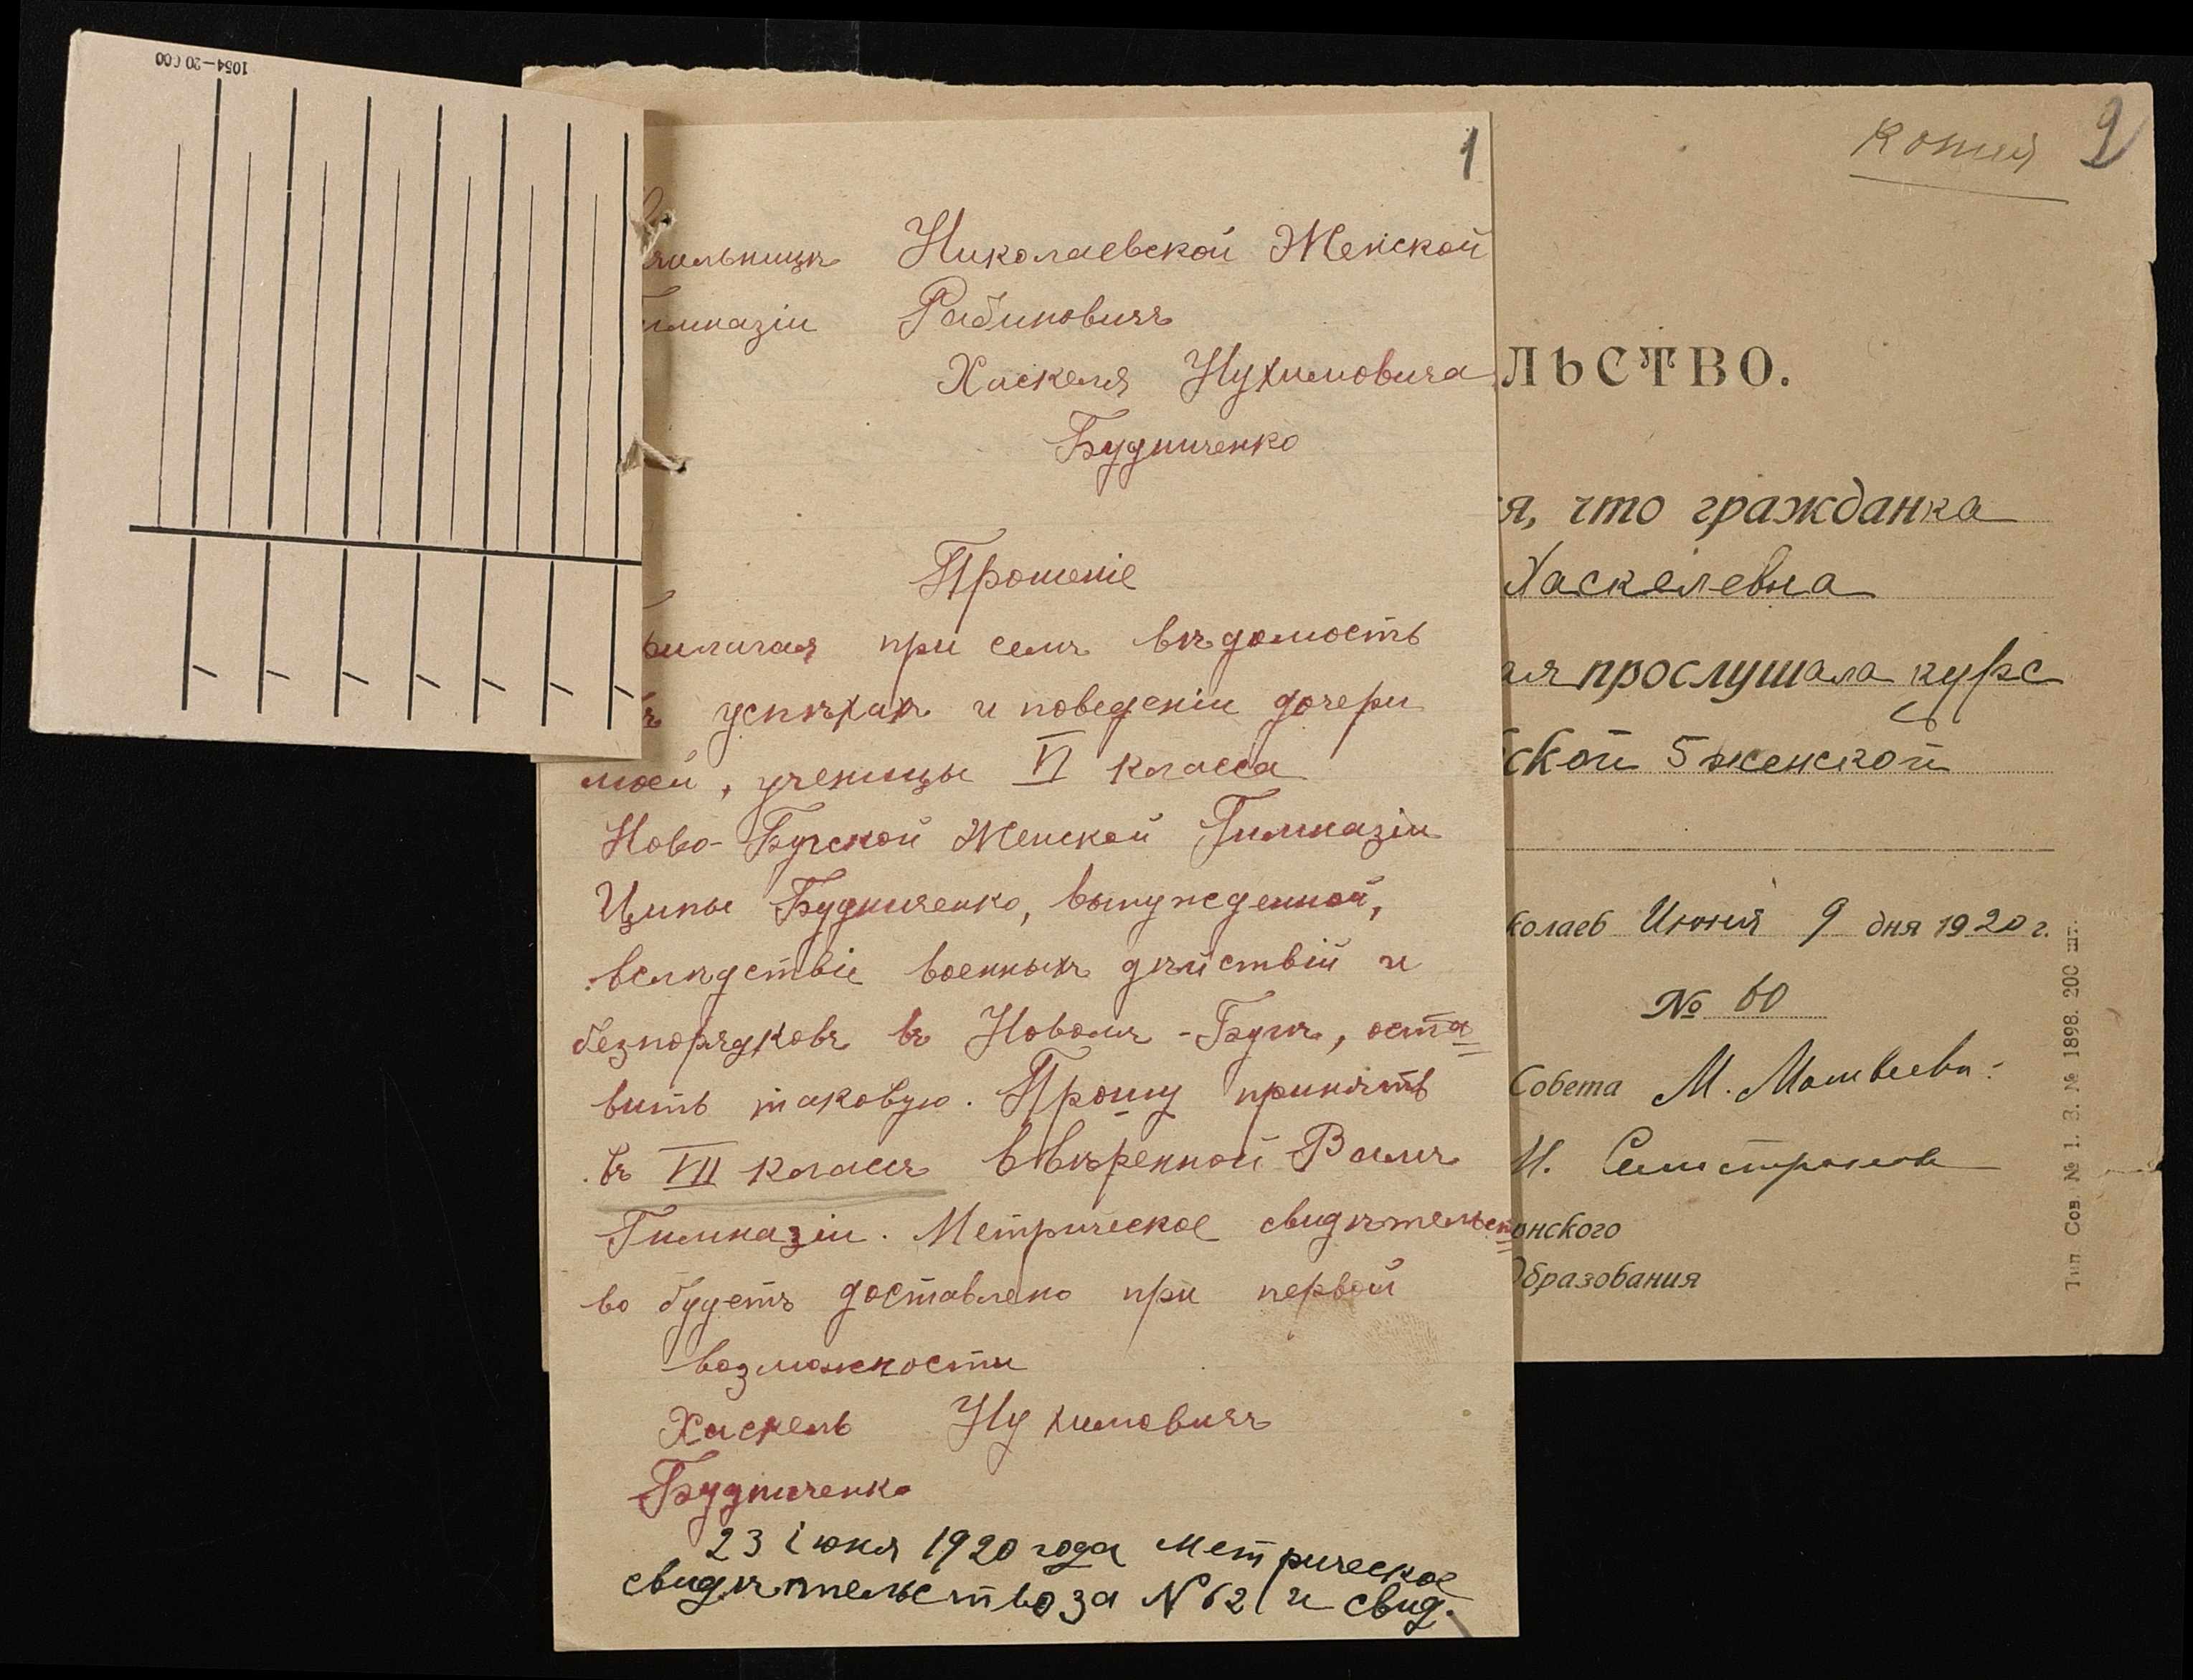 1054—20000
1
чальницѣ Николаевской Женской
имназіи Рабиновичъ
Хаскеля Нухимовича
Будниченко
Прошеніе
рилагая при семъ вѣдомость
ъ успѣхахъ и поведеніи дочери
моей, ученицы VI класса
Ново-Бугской Женской Гимназіи
Ципы Будниченко, вынужденной,
вслѣдствіе военныхъ дѣйствій и
безпорядковъ въ Новомъ-Бугѣ, оста
вить таковую. Прошу принять
въ VII классъ ввѣренной Вамъ
Гимназіи. Метрическое свидѣтельст
во будетъ доставлено при первой
возможности
Хаскель Нухимовичъ
Будниченко
23 іюня 1920 года Метрическое
свидѣтельство за N 621 и свид.
Копия 2
ЛЬСТВО.
я, что гражданка
Хаскелевна
ая прослушала курс
ской 5 женской
колаев Июня 9 дня 1920 г.
№ 60
Совета М. Матвеева
И. Силистранов
онского
Образования
Тип. Сов. № 1. З. № 1898. 200 шт.